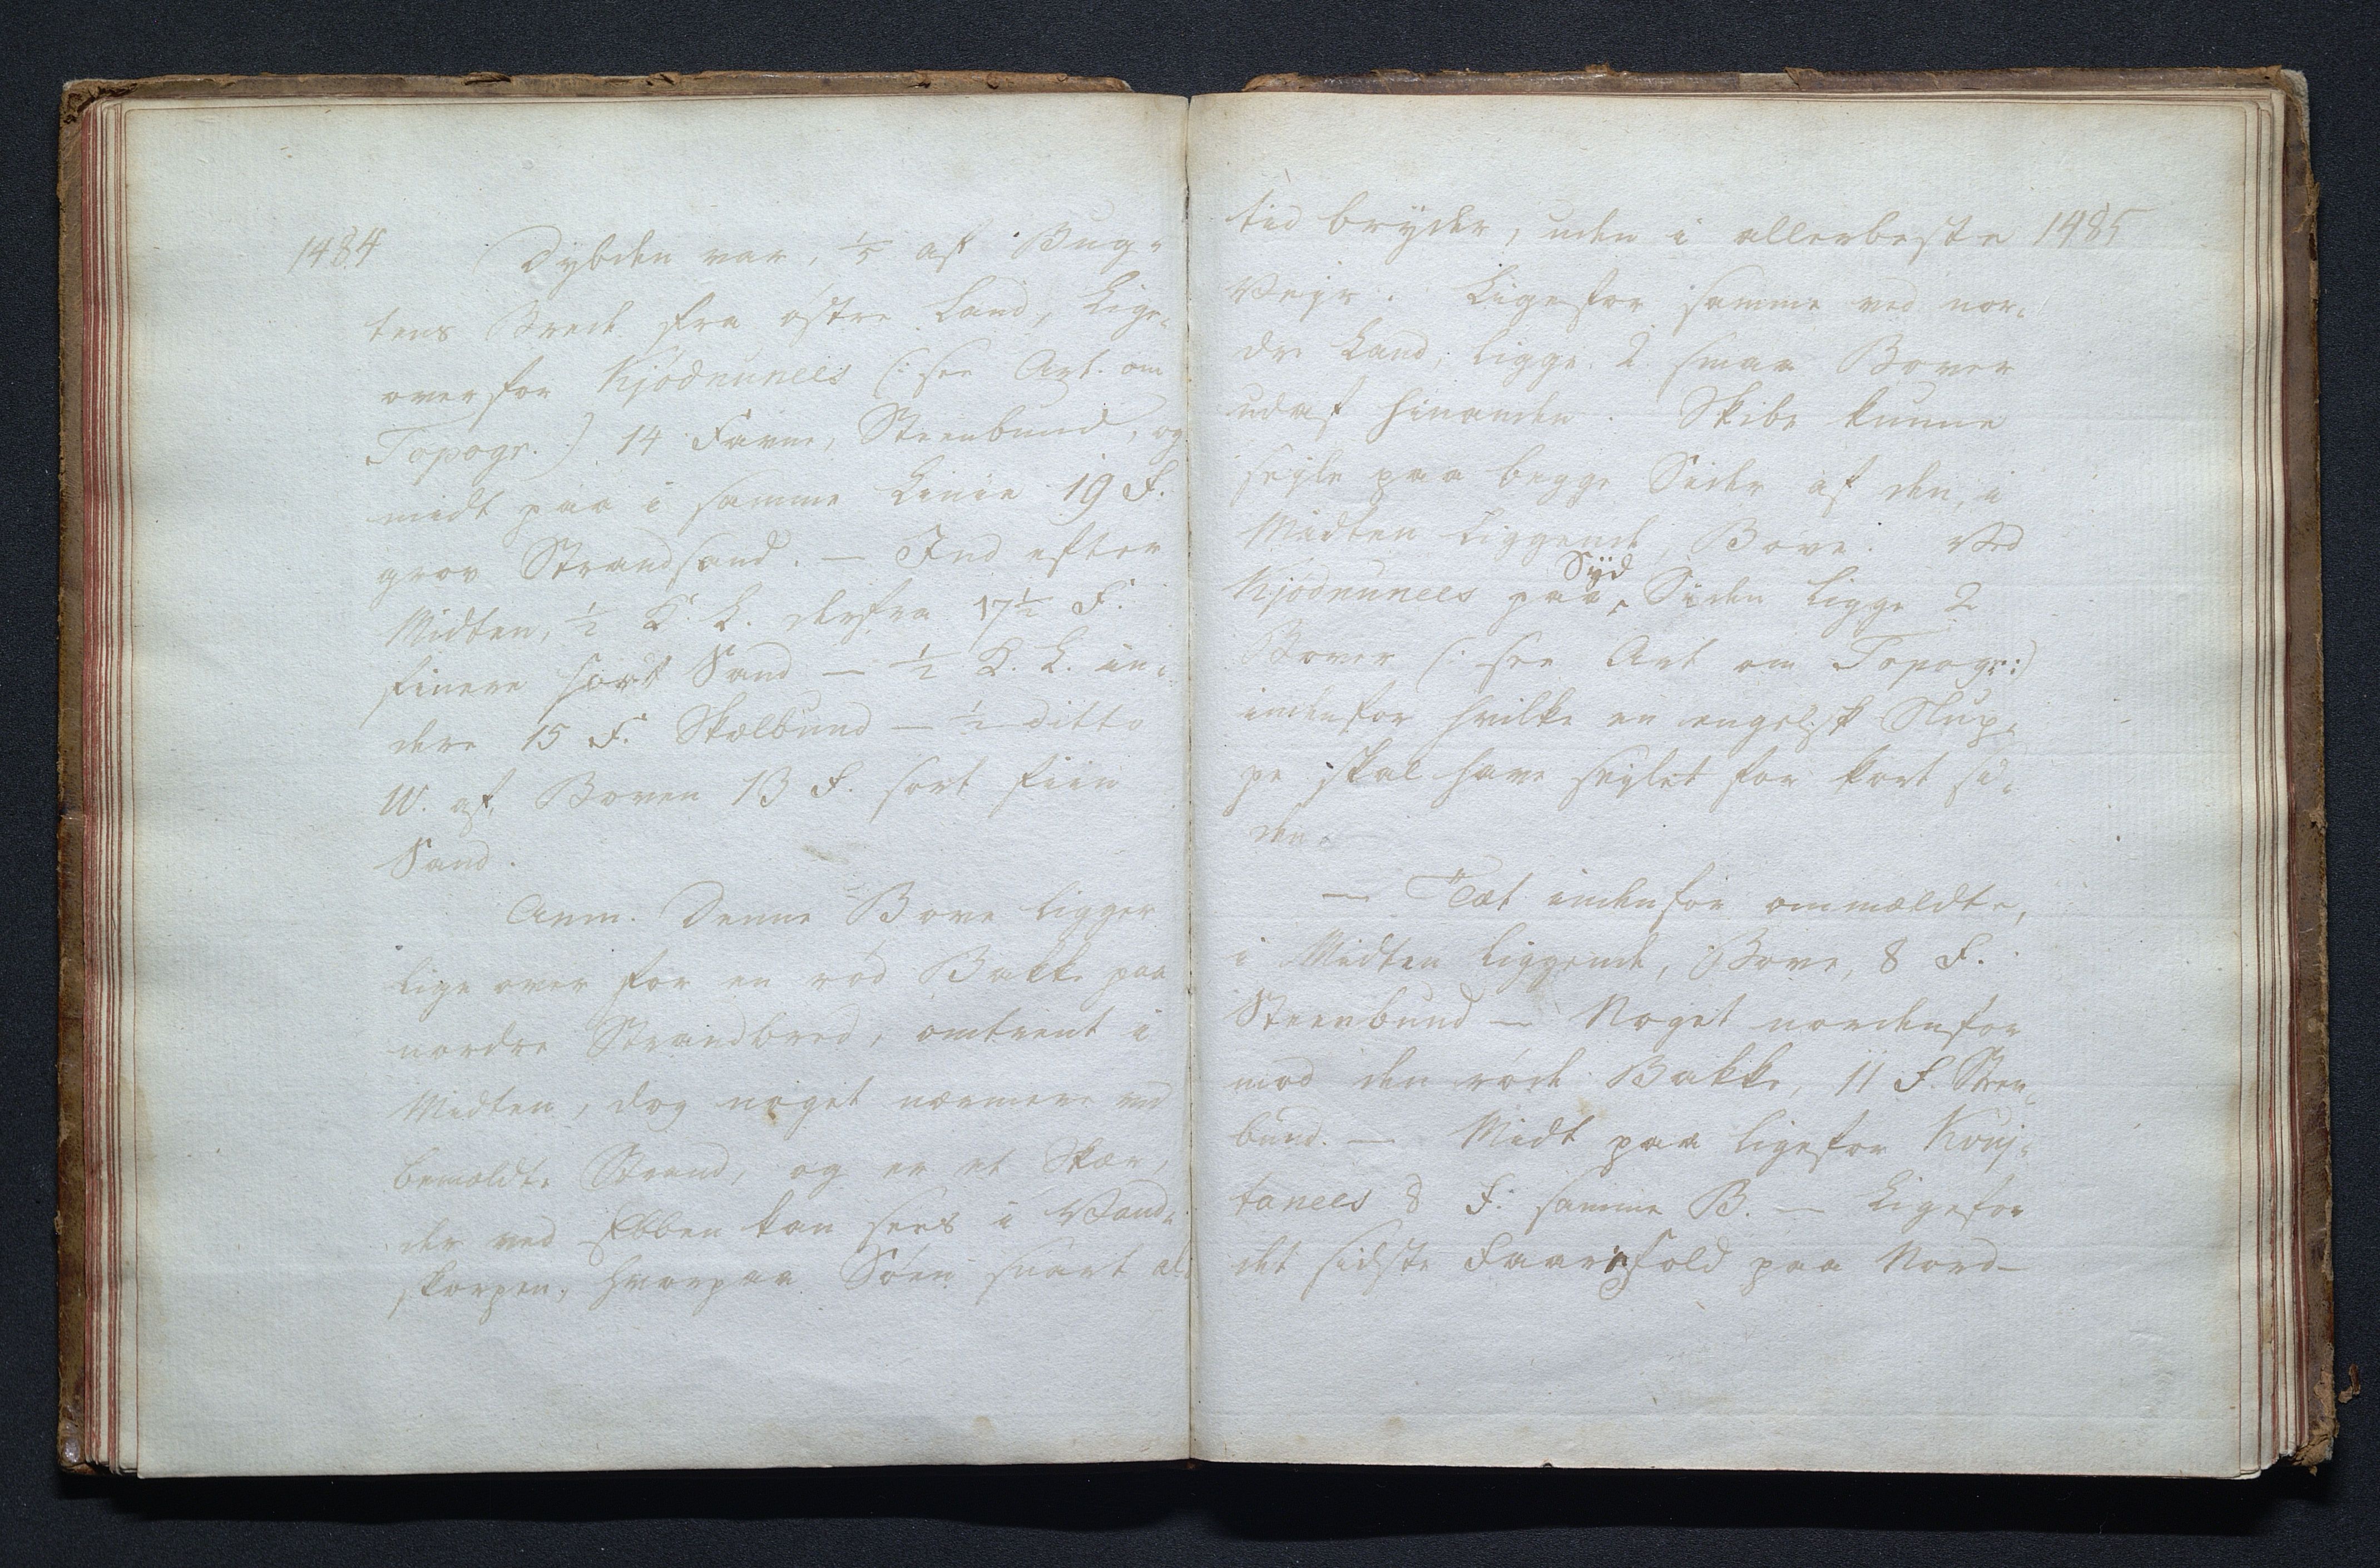 1484
Dybden var, 1/5 af Bug-
tens Brede fra østre Land, lige-
over for Kjodnunees (: see Art. om
Topogr. :) 14 Favne, Steenbund, og
midt paa i samme Linie 19 F.
grov Strandsand. — Ind efter
Midten, ½ K. L. derfra 17½ F.
finere sort Sand — ½ K. L. in-
dere 15 F. Skælbund — ½ ditto
W. af Boven 13 F. sort fiin
Sand.
Anm. Denne Bove ligger
lige over for en rød Bakke paa
nordre Strandbred, omtrent i
Midten, dog noget nærmere ved
bemældte Strand, og er et Skær,
der ved Ebben kan sees i Vand-
skorpen, hvorpaa Søen snart al-
1485
tid bryder, uden i allerbeste
Vejr. Ligefor samme ved nor-
dre Land, ligge 2 smaa Bover
udaf hinanden. Skibe kunne
sejle paa begge Sider af den, i
Midten liggende, Bove. Ved
Kjodnunees paa Syd Siden ligge 2
Bover (: see Art om Topogr :)
indenfor hvilke en engelsk Slup-
pe skal have sejlet for kort si-
den.
— Tæt indenfor ommældte,
i Midten liggende, Bove, 8 F.
Steenbund — Noget nordenfor
mod den røde Bakke, 11 F. Steen-
bund. — Midt paa ligefor Kvuj-
tanees 8 F. samme B. — Ligefor
det sidste Faarefold paa Nord-